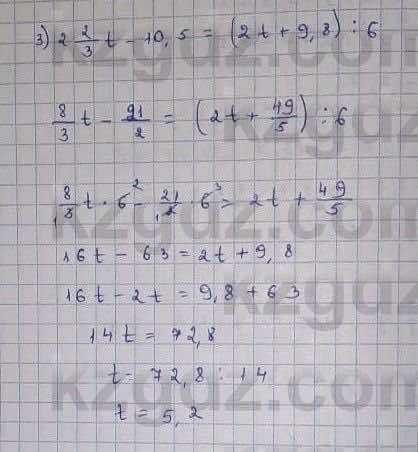 3) 2 2/3 t - 10,5 = (2t + 9,8) : 6
8/3 t - 21/2 = (2t + 49/5) : 6
8/3 t · 6² - 21/2 · 6³ = 2t + 49/5
16t - 63 = 2t + 9,8
16t - 2t = 9,8 + 63
14t = 72,8
t = 72,8 : 14
t = 5,2
kzgdz.com